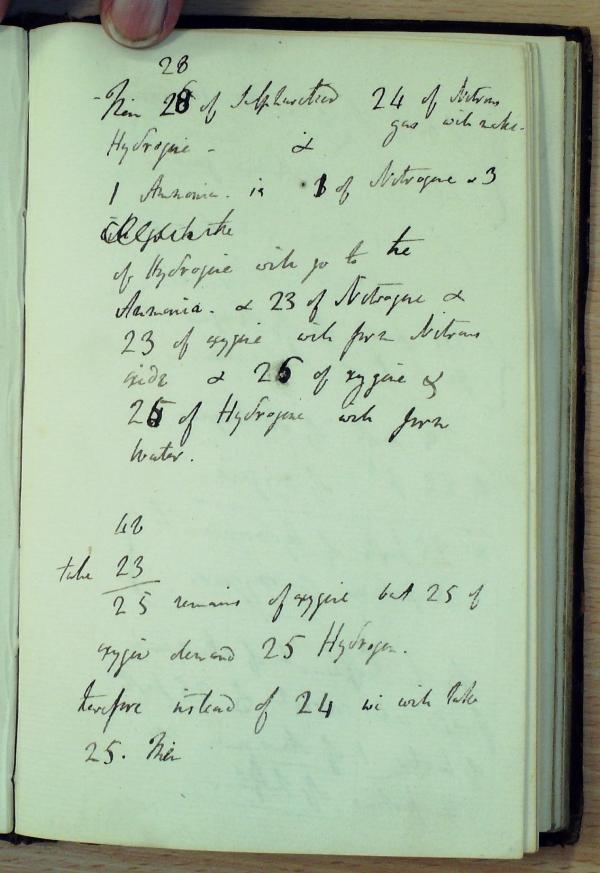 28
Then 28 of Sulphuretted 24 of Nitrous
gas will make
Hydrogene - &
1 Ammonia. is 1 of Nitrogene & 3
of Hydrogene will go to the
Ammonia. & 23 of Nitrogene &
23 of oxygene will form Nitrous
oxide & 26 of oxygene &
26 of Hydrogene will form
Water.
48
take 23
25 remains of oxygene but 25 of
oxygen demand 25 Hydrogen.
therefore instead of 24 we will take
25. Then